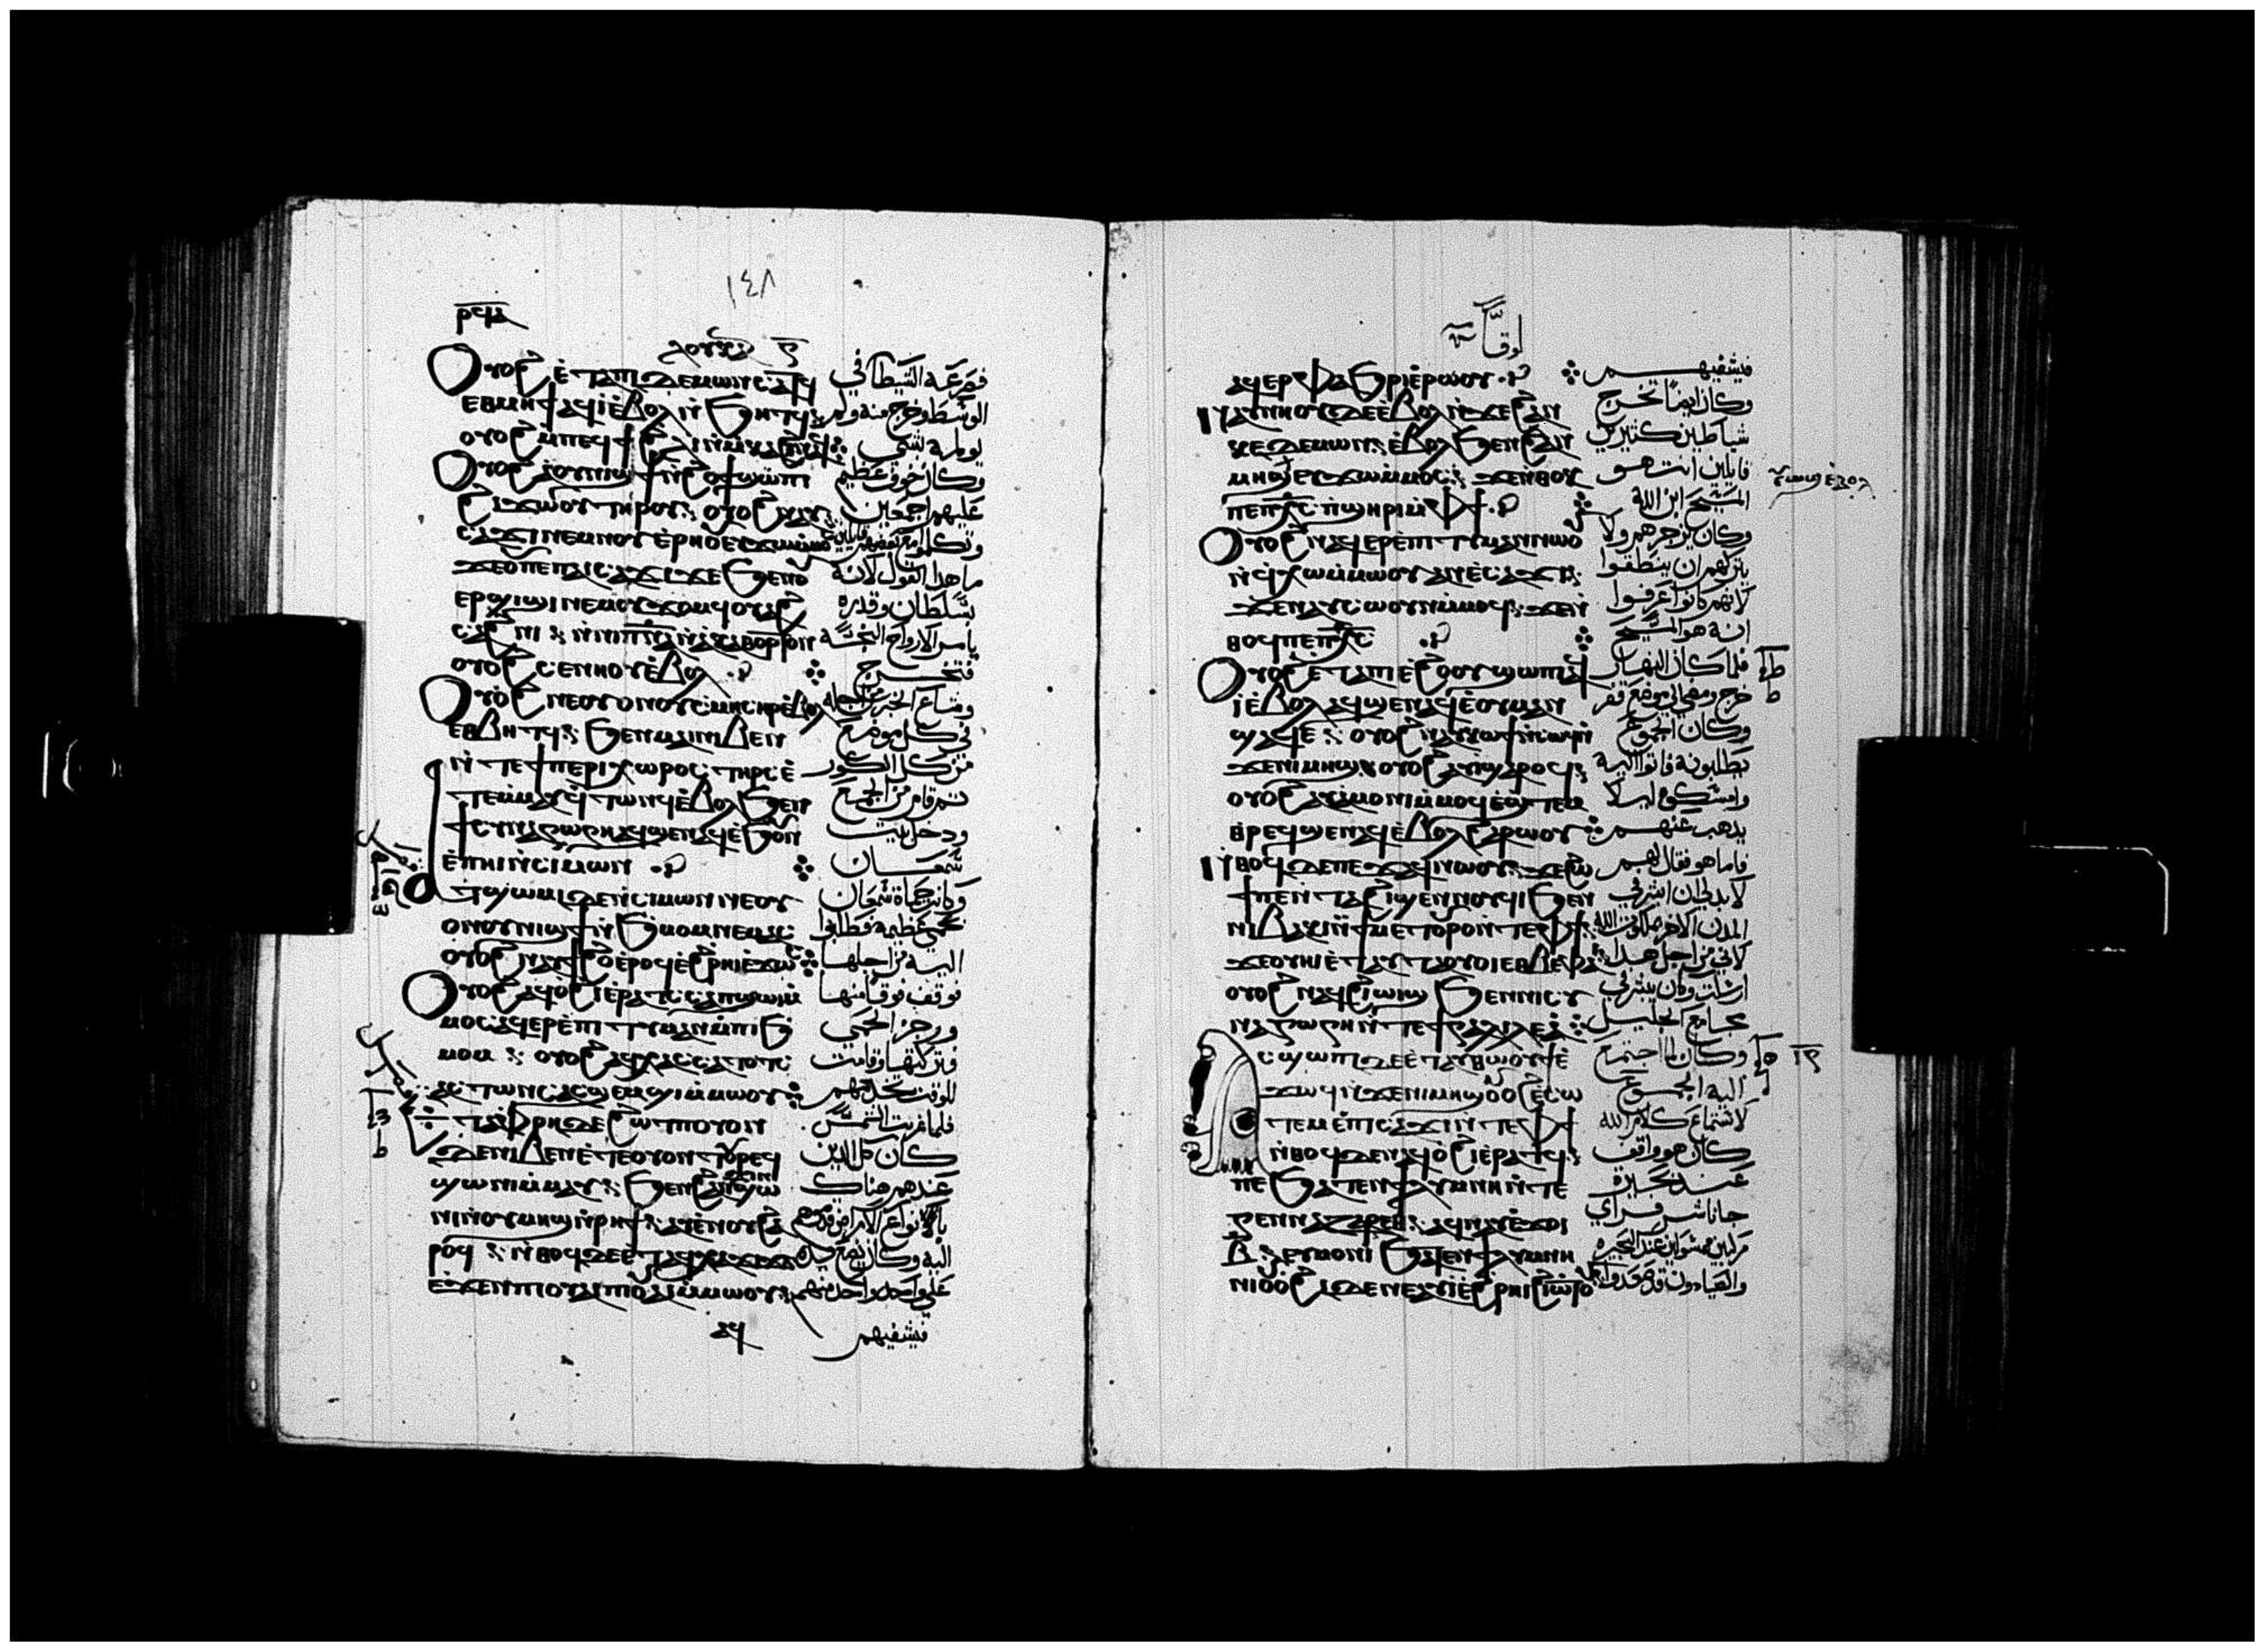 ١٤٨
ⲣϥⲁ
ⲗⲟⲩⲕⲁ
ⲟⲩⲟϩ ⲉⲧⲁⲡⲓⲇⲉⲙⲱⲛ ⲥⲁⲧϥ
ⲉⲑⲙⲏϯ ⲁϥⲓ̀ⲉ̀ⲃⲟⲗ ⲛ̀ϧⲏⲧϥ
ⲟⲩⲟϩ ⲙ̀ⲡⲉϥϯ ϩⲗⲓ ⲛ̀ⲙⲕⲁϩ ⲛⲁϥ
ⲟⲩⲟϩ ⲁⲟⲩⲛⲓϣϯ ⲛ̀ϩⲟϯ ϣⲱⲡⲓ
ϩⲓϫⲱⲟⲩ ⲧⲏⲣⲟⲩ ⲟⲩⲟϩ ⲛⲁⲩ
ⲥⲁϫⲓ ⲛⲉⲙ ⲛⲟⲩⲉ̀ⲣⲏⲟⲩ ⲉⲩϫⲱ ⲙ̀ⲙⲟⲥ
ϫⲉ ⲟⲩ ⲡⲉ ⲡⲁⲓⲥⲁϫⲓ ϫⲉ ϧⲉⲛ ⲟⲩ
ⲉⲣϣⲓϣⲓ ⲛⲉⲙ ⲟⲩϫⲟⲙ ϥⲟⲩⲁϩ
ⲥⲁϩⲛⲓ ⲛ̀ⲛⲓⲡⲛ̅ⲁ̅ ⲛ̀ⲁⲕⲁⲑⲁⲣⲧⲟⲛ
ⲟⲩⲟϩ ⲥⲉⲛⲏⲟⲩ ⲉ̀ⲃⲟⲗ
ⲟⲩⲟϩ ⲛⲉⲟⲩⲟⲛ ⲟⲩⲥⲙⲏ ⲥⲏⲣ ⲉ̀ⲃⲟⲗ
ⲉⲑⲃⲏⲧϥ ϧⲉⲛ ⲙⲁⲓ ⲛⲓⲃⲉⲛ
ⲛ̀ⲧⲉ ϯⲡⲉⲣⲓⲭⲱⲣⲟⲥ ⲧⲏⲣⲥ ⲉ̀
ⲧⲉⲙⲙⲁⲩ ⲉ̀ⲧⲁϥⲧⲱⲛϥ ⲉ̀ⲃⲟⲗ ϧⲉⲛ
ϯⲥⲩⲛⲁⲅⲱⲅⲏ ⲁϥϣⲉⲛⲁϥ ⲉ̀ϧⲟⲩⲛ
ⲉ̀ⲡⲏⲓ ⲛ̀ⲥⲓⲙⲱⲛ
ⲧϣⲱⲙⲓ ⲇⲉ ⲛ̀ⲥⲓⲙⲱⲛ ⲛⲉⲟⲩ
ⲟⲛ ⲟⲩⲛⲓϣϯ ⲛ̀ϧⲙⲟⲙ ⲛⲉⲙⲁⲥ
ⲟⲩⲟϩ ⲛⲁⲩϯϩⲟ ⲉ̀ⲣⲟϥ ⲉ̀ϩⲣⲏⲓ ⲉ̀ϫⲱⲥ
ⲟⲩⲟϩ ⲁϥⲟ̀ϩⲓ ⲉ̀ⲣⲁⲧϥ ⲥⲁⲡϣⲱⲓ ⲙ̀
ⲙⲟⲥ ⲁϥⲉⲣⲉ̀ⲡⲓⲧⲓⲙⲁⲛ ⲙ̀ⲡⲓϧ
ⲙⲟⲙ ⲟⲩⲟϩ ⲁϥⲭⲁⲥ ⲥⲁⲧⲟⲧⲥ
ⲁⲥⲧⲱⲛⲥ ⲁⲥϣⲉⲙϣⲓ ⲙ̀ⲙⲱⲟⲩ
ⲉⲧⲁⲫⲣⲏ ⲇⲉ ϩⲱⲧⲡ ⲟⲩⲟⲛ
ⲇⲉ ⲛⲓⲃⲉⲛ ⲉ̀ⲧⲉⲟⲩⲟⲛⲧⲟⲩ ⲣⲉϥ
ϣⲱⲛⲓ ⲙ̀ⲙⲁⲩ ϧⲉⲛ ϩⲁⲛϣⲱ
ⲛⲓ ⲛ̀ⲟⲩⲙⲏϣ ⲛ̀ⲣⲏϯ ⲁⲩⲉ̀ⲛⲟⲩ ϩⲁ
ⲣⲟϥ ⲛ̀ⲑⲟϥ ⲇⲉ ⲉ̀ⲧⲁϥⲭⲁϫⲓϫ
ⲉ̀ϫⲉⲛ ⲡⲓⲟⲩⲁⲓ ⲡⲓⲟⲩⲁⲓ ⲙ̀ⲙⲱⲟⲩ
ⲁϥ
فصرعه الشيطان في
الوسط وخرج منه ولم
يولمه شي
وكان خوف عظيم
عليهم اجمعين
وتكلموا مع بعضهم قايلين
ما هذا القول لانه
بسلطان وقدره
يامر الارواح النجسه
فتخرج
وشاع الخبر من اجله
في كل موضع
من كل الكور
ثم قام من المجمع
ودخل بيت
شمعان
وكانت حماة شمعان
بحمى عظيمه فطلبوا
اليه من اجلها
فوقف فوقا منها
وزجر الحمى
فتركتها وقامت
للوقت تخدمهم
فلما غربت الشمس
كان كل الذين
عندهم هناك
بانواع الامراض قدموهم
اليه وكان يضع يده
على واحد واحد منهم
فيشفيهم
لوقا
ⲁϥⲉⲣⲫⲁϧⲣⲓ ⲉ̀ⲣⲱⲟⲩ
ⲛⲁⲩⲛⲏⲟⲩ ⲇⲉ ⲉ̀ⲃⲟⲗ ⲛ̀ϫⲉ ϩⲁⲛ
ⲕⲉⲇⲉⲙⲱⲛ ⲉ̀ⲃⲟⲗ ϧⲉⲛ ϩⲁⲛ
ⲙⲏϣ ⲉⲩϫⲱ ⲙ̀ⲙⲟⲥ ϫⲉ ⲛ̀ⲑⲟⲕ
ⲡⲉ ⲡⲭ̅ⲥ̅ ⲡ̀ϣⲏⲣⲓ ⲙ̀ⲫϯ
ⲟⲩⲟϩ ⲛⲁϥⲉⲣⲉ̀ⲡⲓⲧⲓⲙⲁⲛ ⲛⲱⲟⲩ
ⲛ̀ϥⲭⲱ ⲙ̀ⲙⲱⲟⲩ ⲁⲛ ⲉ̀ⲥⲁϫⲓ
ϫⲉ ⲛⲁⲩⲥⲱⲟⲩⲛ ⲙ̀ⲙⲟϥ ϫⲉ ⲛ̀
ⲑⲟϥ ⲡⲉ ⲡⲭ̅ⲥ̅
ⲟⲩⲟϩ ⲉ̀ⲧⲁⲡⲓⲉ̀ϩⲟⲟⲩ ϣⲱⲡⲓ ⲁϥ
ⲓ̀ ⲉ̀ⲃⲟⲗ ⲁϥϣⲉⲛⲁϥ ⲉ̀ⲟⲩⲙⲁ ⲛ̀
ϣⲁϥⲉ ⲟⲩⲟϩ ⲛⲁⲩⲕⲱϯ ⲛ̀ⲥⲱϥ
ϫⲉ ⲛⲓⲙⲏϣ ⲟⲩⲟϩ ⲁⲩⲓ̀ ϣⲁⲣⲟϥ
ⲟⲩⲟϩ ⲁⲩⲁ̀ⲙⲟⲛⲓ ⲙ̀ⲙⲟϥ ⲉ̀ϣⲧⲉⲙ
ⲑⲣⲉϥϣⲉⲛⲁϥ ⲉ̀ⲃⲟⲗ ϩⲁⲣⲱⲟⲩ
ⲛ̀ⲑⲟϥ ⲇⲉ ⲡⲉϫⲁϥ ⲛⲱⲟⲩ ϫⲉ ϩⲱ
ϯ ⲡⲉ ⲛ̀ⲧⲁϩⲓϣⲉⲛⲛⲟⲩϥⲓ ϧⲉⲛ
ⲛⲓⲃⲁⲕⲓ ⲛ̀ϯⲙⲉⲧⲟⲩⲣⲟ ⲛ̀ⲧⲉ ⲫϯ
ϫⲉ ⲟⲩⲏⲓ ⲉ̀ⲧⲁⲩⲧⲁⲟⲩⲟⲓ ⲉⲑⲃⲉ ⲫⲁⲓ
ⲟⲩⲟϩ ⲛⲁϥϩⲓⲱⲓϣ ϧⲉⲛ ⲛⲓⲥⲩ
ⲛⲁⲅⲱⲅⲏ ⲛ̀ⲧⲉ ϯⲅⲁⲗⲓⲗⲉⲁ̀
ⲁⲥϣⲱⲡⲓ ⲇⲉ ⲉ̀ⲧⲁⲩⲑⲱⲟⲩϯ ⲉ̀
ϫⲱϥ ⲛ̀ϫⲉ ⲛⲓⲙⲏϣ ⲟⲩⲟϩ ⲉ̀ⲥⲱ
ⲧⲉⲙ ⲉ̀ⲡⲓⲥⲁϫⲓ ⲛ̀ⲧⲉ ⲫϯ
ⲛ̀ⲑⲟϥ ⲇⲉ ⲛⲁϥⲟ̀ϩⲓ ⲉ̀ⲣⲁⲧϥ
ⲡⲉ ϧⲁⲧⲉⲛ ϯⲗⲩⲙⲛⲏ ⲛ̀ⲧⲉ
ⲅⲉⲛⲛⲏⲥⲁⲣⲉⲑ ⲁϥⲛⲁⲩ ⲉ̀ϫⲟⲓ
ⲃ̅ ⲉⲩⲙⲟⲛⲓ ϧⲁⲧⲉⲛ ϯⲗⲩⲙⲛⲏ
ⲛⲓⲟⲩⲟϩⲓ ⲇⲉ ⲛⲉⲁⲩⲓ̀ ⲉ̀ϩⲣⲏⲓ ϩⲓⲱⲧⲟⲩ
فيشفيهم
وكان ايضا تخرج
شياطين كثيرين
قايلين انت هو
المسيح ابن الله
وكان يزجرهم ولا
يتركهم ان ينطقوا
لانهم كانوا عرفوا
انه هو المسيح
فلما كان النهار
خرج ومضى الى موضع قفر
وكان الجموع
يطلبونه فاتوا اليه
وامسكوه لىلا
يذهب عنهم
فاما هو فقال لهم
لا بد لي ان ابشر في
المدن الاخر بملكوت الله
لاني من اجل هذا
ارسلت وكان يبشر في
مجامع الجليل
وكان لما اجتمع
اليه الجموع
لاستماع كلام الله
كان هو واقف
عند بحيرة
جاناشر فراي
مركبين مرسوين عند البحيره
والصيادون قد صعدوا